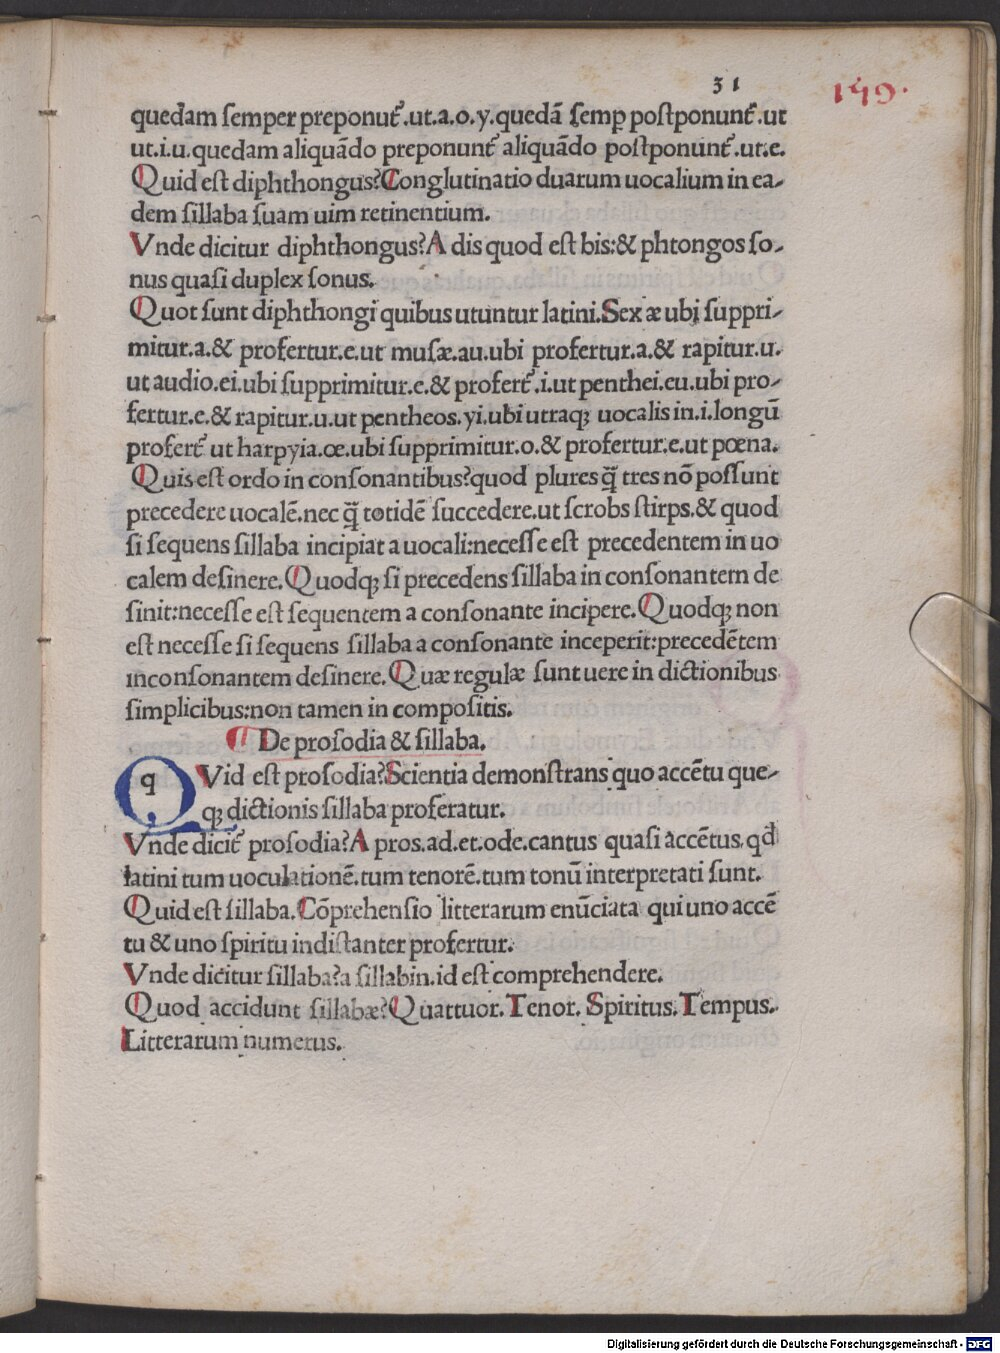 31
159.
quedam ſemper preponut᷑.ut.a.o.y.quedā ſemꝑ poſtponunt᷑.ut
ut.i.u.quedam aliquādo preponunt᷑ aliquādo poſtponunt᷑.ut.e.
Quid eſt diphthongus?Conglutinatio duarum uocalium in ea-
dem ſillaba ſuam uim retinentium.
Vnde dicitur diphthongus?A dis quod eſt bis:& phtongos ſo-
nus quaſi duplex ſonus.
Quot ſunt diphthongi quibus utuntur latini.Sex æ ubi ſuppri-
mitur.a.& profertur.e.ut muſæ.au.ubi profertur.a.& rapitur.u.
ut audio.ei.ubi ſupprimitur.e.& profert᷑.i.ut penthei.eu.ubi pro-
fertur.e.& rapitur.u.ut pentheos.yi.ubi utraqꝫ uocalis in.i.longū
profert᷑ ut harpyia.œ.ubi ſupprimitur.o.& profertur.e.ut pœna.
Quis eſt ordo in conſonantibus?quod plures q̄̃ tres nō poſſunt
precedere uocalē.nec q̄̃ totidē ſuccedere.ut ſcrobs ſtirps.& quod
ſi ſequens ſillaba incipiat a uocali:neceſſe eſt precedentem in uo
calem deſinere.Quodqꝫ ſi precedens ſillaba in conſonantem de
ſinit:neceſſe eſt ſequentem a conſonante incipere.Quodqꝫ non
eſt neceſſe ſi ſequens ſillaba a conſonante inceperit:precedētem
inconſonantem deſinere.Quæ regulæ ſunt uere in dictionibus
ſimplicibus:non tamen in compoſitis.
¶ De proſodia & ſillaba.
Q q Vid eſt proſodia?Scientia demonſtrans quo accētu que-
qꝫ dictionis ſillaba proferatur.
Vnde dicit᷑ proſodia?A pros.ad.et.ode.cantus quaſi accētus.qđ
latini tum uoculationē.tum tenorē.tum tonū interpretati ſunt.
Quid eſt ſillaba.Cōprehenſio litterarum enūciata qui uno accē
tu & uno ſpiritu indiſtanter profertur.
Vnde dicitur ſillaba?a ſillabin.id eſt comprehendere.
Quod accidunt ſillabæ?Quattuor.Tenor.Spiritus.Tempus.
Litterarum numerus.
Digitalisierung gefördert durch die Deutsche Forschungsgemeinschaft - DFG